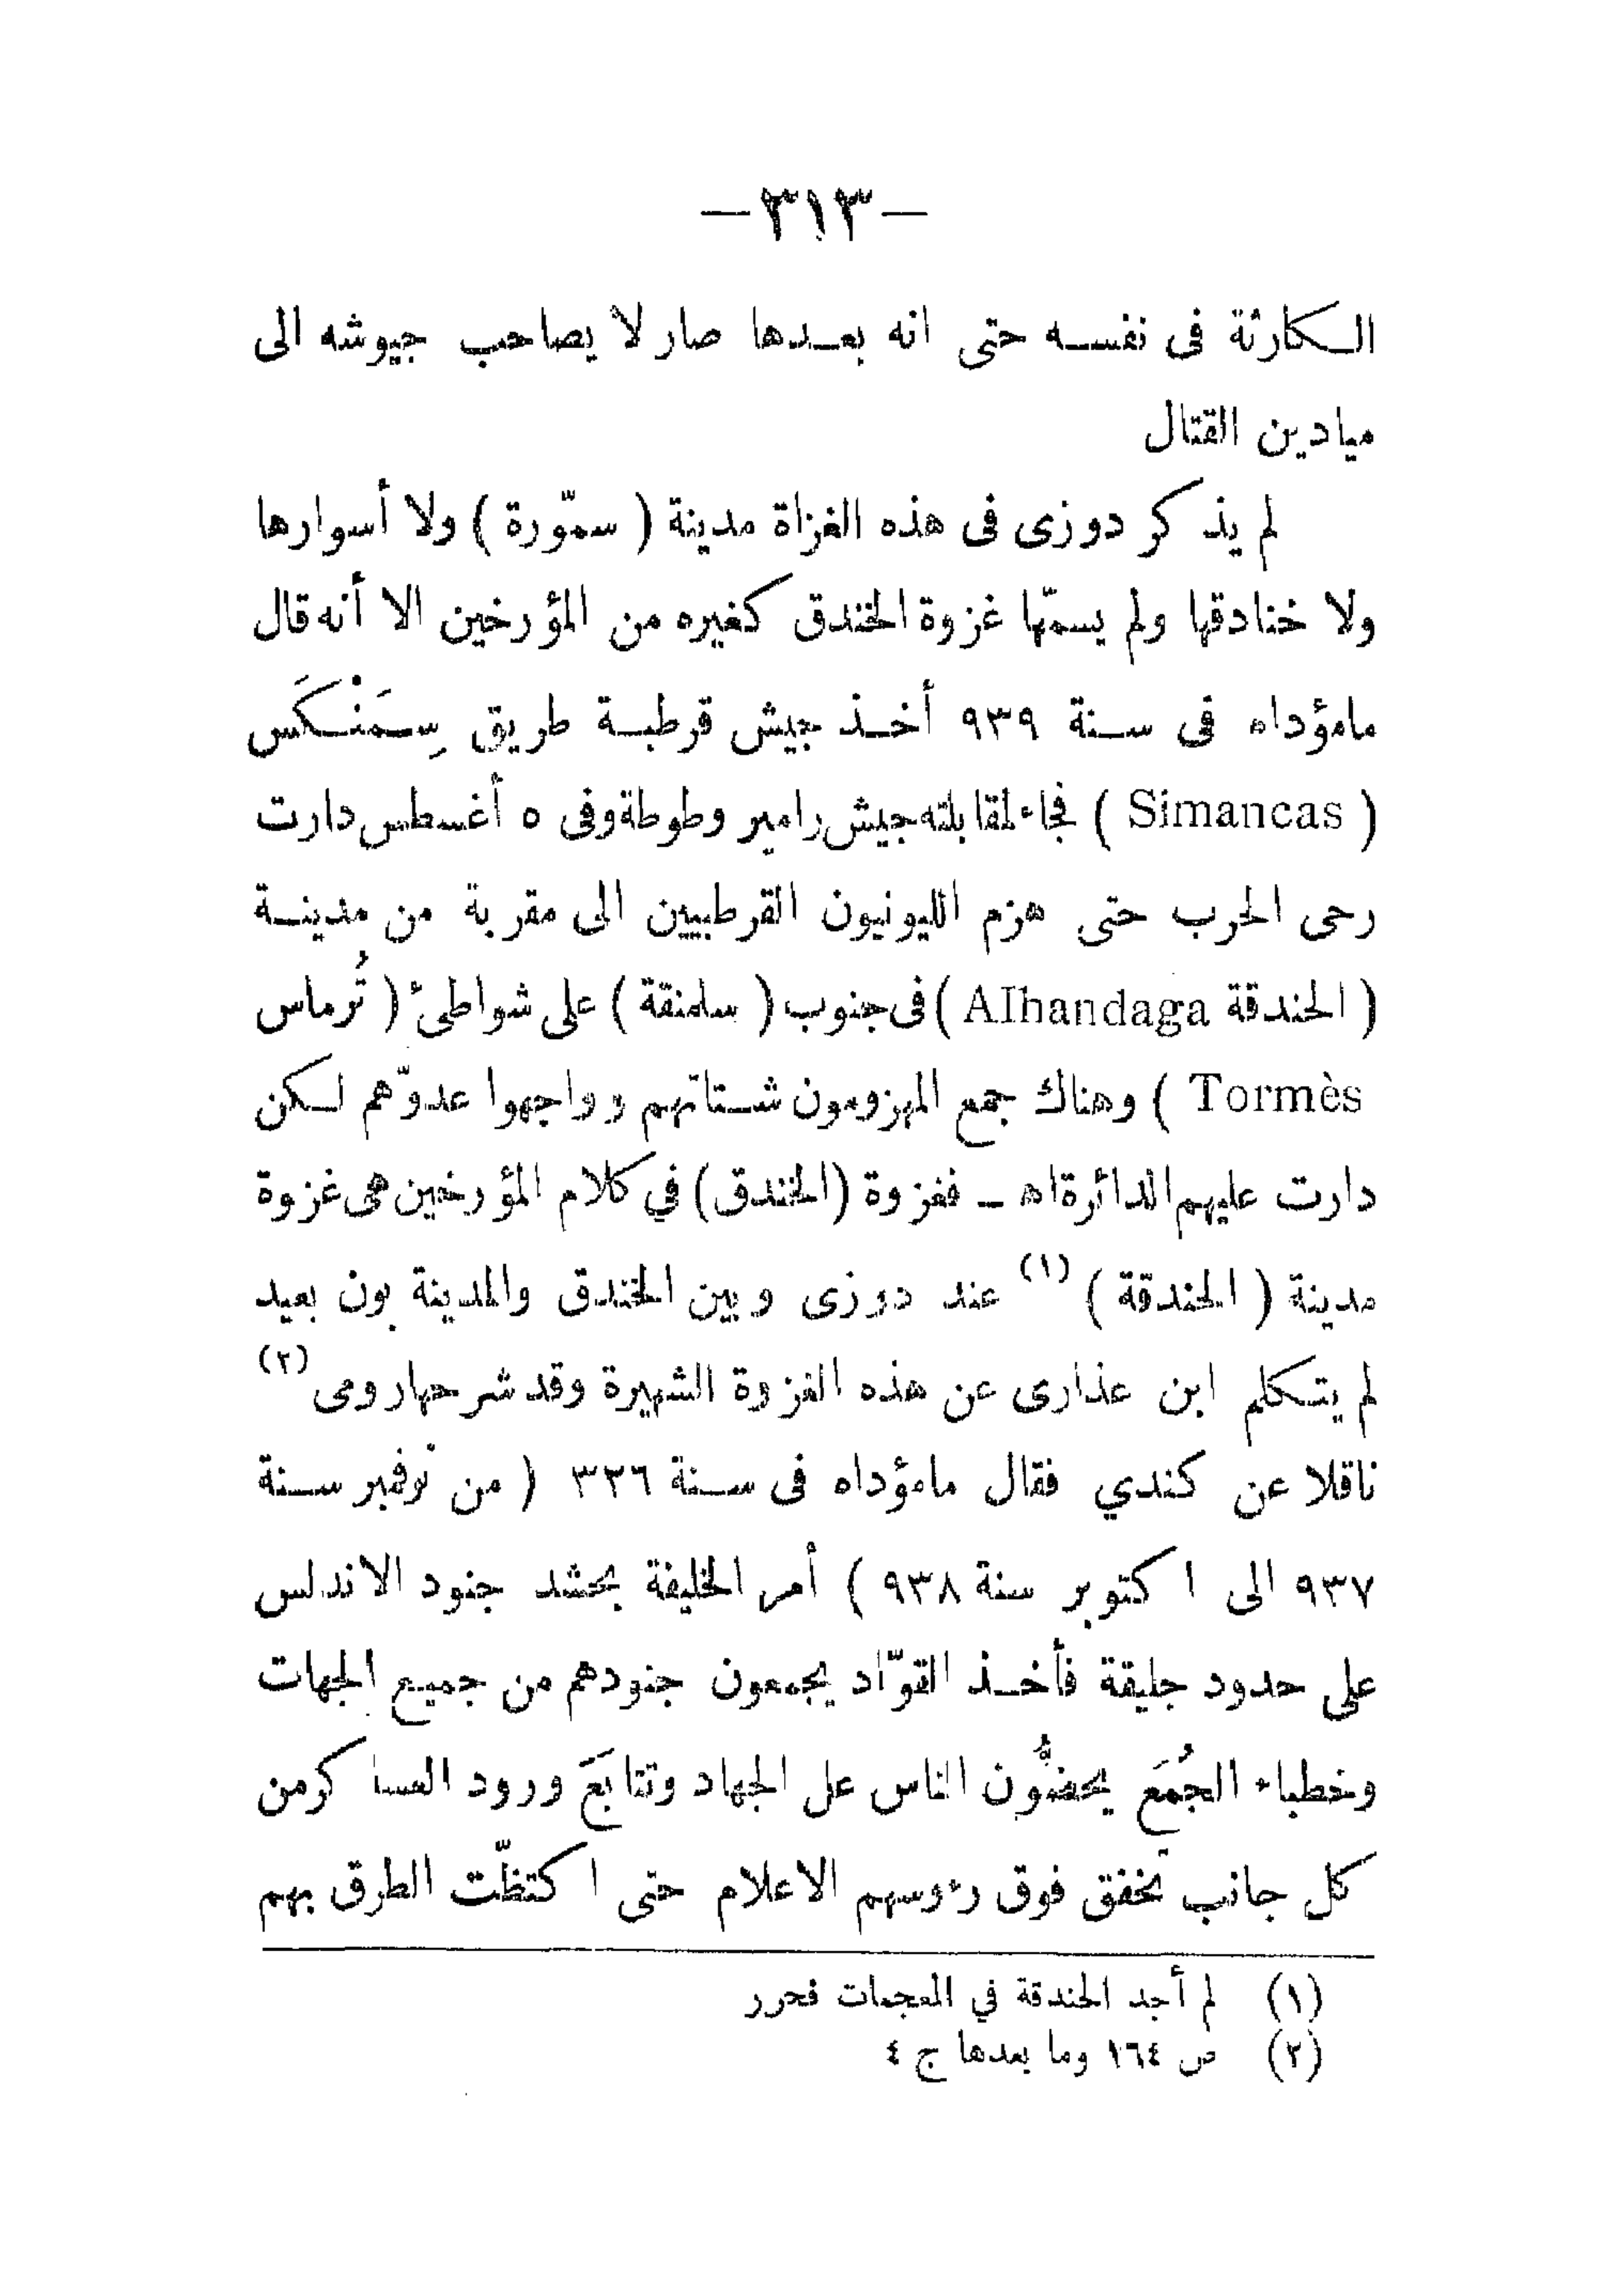 — ٣١٣ —
الكارثة فى نفسه حتى انه بعدها صار لا يصاحب جيوشه الى
ميادين القتال
لم يذكر دوزى فى هذه الغزاة مدينة ( سمّورة ) ولا أسوارها
ولا خنادقها ولم يسمّها غزوة الخندق كغيره من المؤرخين الا أنه قال
مامؤداه فى سنة ٩٣٩ أخذ جيش قرطبة طريق سِمَنْكَس
( Simancas ) فجاء لمقابلته جيش رامير وطوطة وفى ٥ أغسطس دارت
رحى الحرب حتى هزم الليونيون القرطبيين الى مقربة من مدينة
( الخندقة AIhandaga ) فى جنوب ( سلمنقة ) على شواطىء ( تُرماس
Tormès ) وهناك جمع المهزومون شتاتهم وواجهوا عدوّهم لكن
دارت عليهم الدائرة اه ـ فغزوة (الخندق) في كلام المؤرخين هى غزوة
مدينة ( الخندقة ) (١) عند دوزى وبين الخندق والمدينة بون بعيد
لم يتكلم ابن عذارى عن هذه الغزوة الشهيرة وقد شرحها رومى (٢)
ناقلا عن كندي فقال مامؤداه فى سنة ٣٢٦ ( من نوفمبر سنة
٩٣٧ الى اكتوبر سنة ٩٣٨ ) أمر الخليفة بحشد جنود الاندلس
على حدود جليقة فأخذ القوّاد يجمعون جنودهم من جميع الجهات
وخطباء الجُمَع يحضُّون الناس على الجهاد وتتابَعَ ورود العساكر من
كل جانب تخفق فوق رءوسهم الاعلام حتى اكتظّت الطرق بهم
(١) لم أجد الخندقة في المعجمات فحرر
(٢) ص ١٦٤ وما بعدها ج ٤